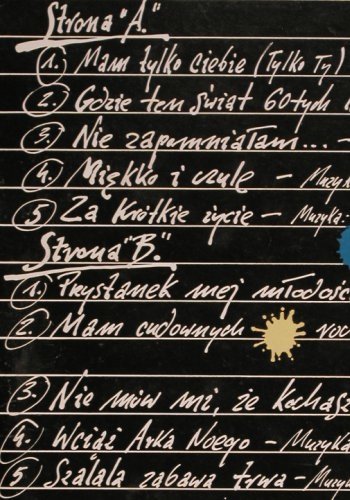 Strona "A."
1. Mam tylko ciebie (Tylko Ty)
2. Gdzie ten świat 60-tych
3. Nie zapomniałam... -
4. Miękko i czule - Muzyk
5 Za krótkie życie - Muzyka -
Strona "B."
1. Przystanek mej młodośc
2. Mam cudownych
3. Nie mów mi, że kochasz
4. Wciąż Arka Noego - Muzyka
5 Szalala zabawa trwa - Muzyk